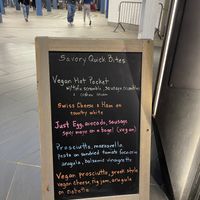 Savory Quick Bites
Vegan Hot Pocket
w/ tofu scramble, sausage
& cashew cream
Swiss Cheese & Ham on
country white
Just Egg, avocado, sausage
spicy mayo on a bagel (vegan)
Prosciutto, mozzarella,
pesto on sundried tomato focaccia
arugula, balsamic vinaigrette
Vegan prosciutto, greek style
vegan cheese, fig jam, arugula
on ciabatta